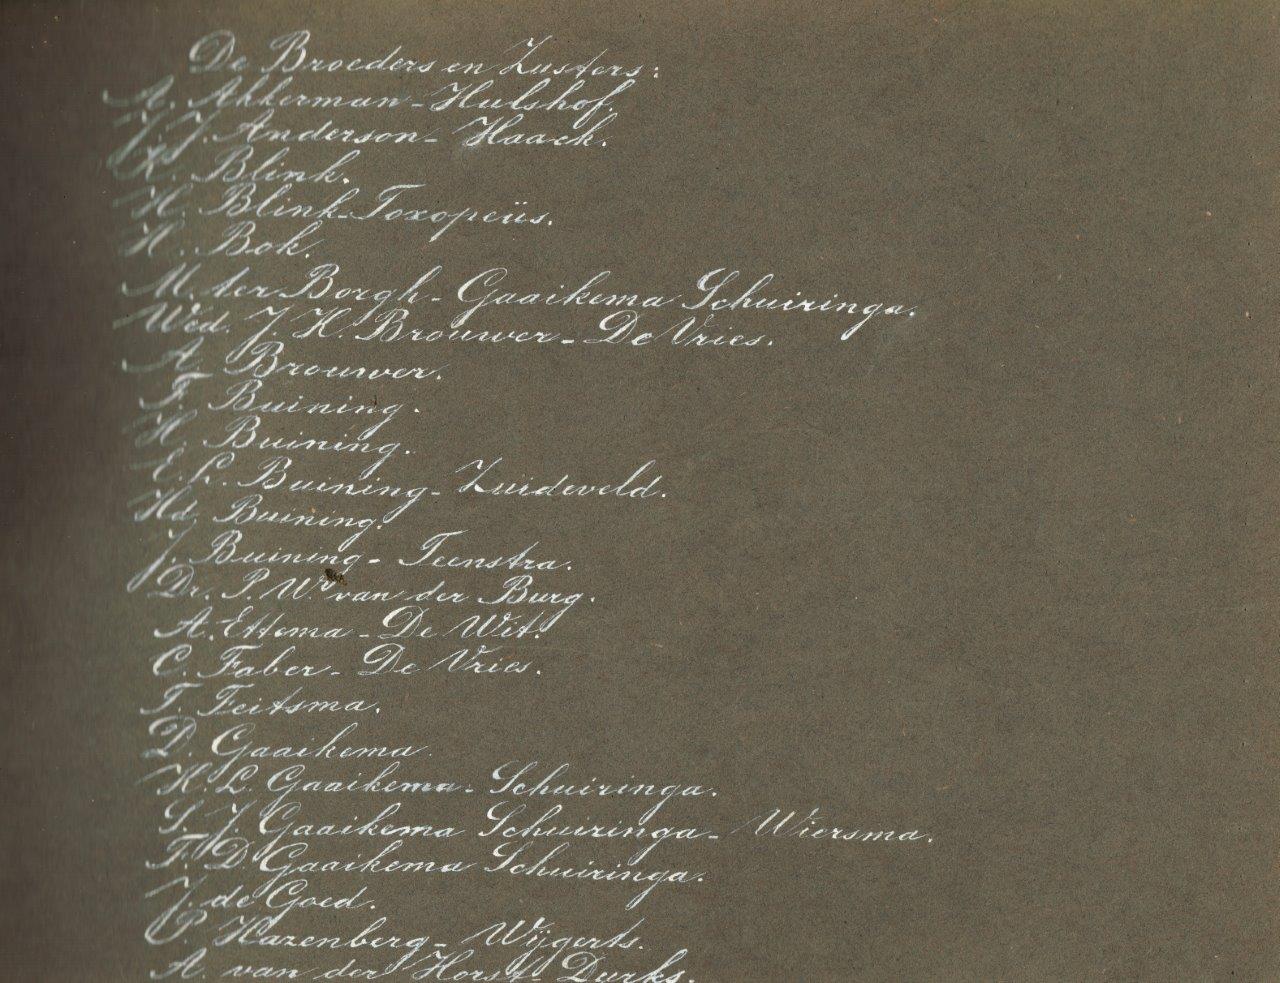 De Broeders en Zusters:
A. Akkerman-Hulshof.
J. J. Anderson-Haack.
K. Blink.
H. Blink-Toxopeüs.
H. Bok.
M. ter Borgh-Gaaikema Schuiringa.
Wed. J. H. Brouwer-De Vries.
A. Brouwer.
F. Buining.
H. Buining.
E. L. Buining-Zuideveld.
Hd. Buining.
J. Buining-Teenstra.
Dr. P. W. van der Burg.
A. Ettema-De Wit.
C. Faber-De Vries.
T. Feitsma.
D. Gaaikema.
K. L. Gaaikema-Schuiringa.
S. J. Gaaikema Schuiringa-Wiersma.
T. D. Gaaikema Schuiringa.
J. de Goed.
P. Hazenberg-Wijgerts.
A. van der Horst-Durks.